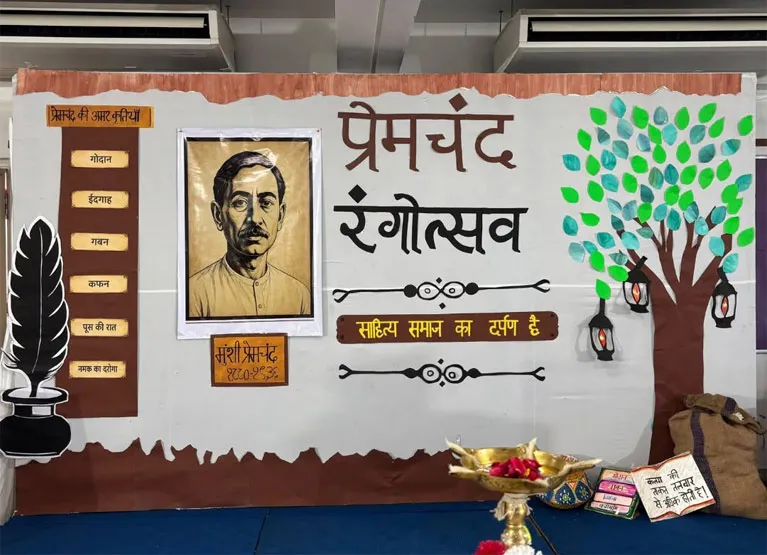 प्रेमचंद की अमर कृतियाँ
गोदान
ईदगाह
गबन
कफन
पूस की रात
नमक का दरोगा
मुंशी प्रेमचंद
१८८०-१९३६
प्रेमचंद
रंगोत्सव
साहित्य समाज का दर्पण है
गबन
कलम की
ताकत तलवार
से अधिक होती है।